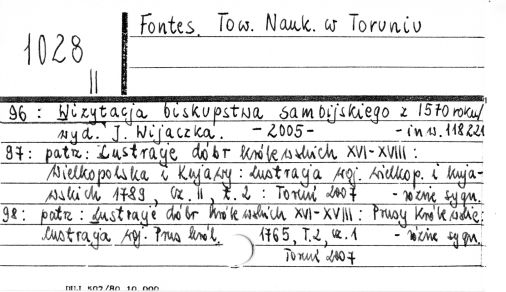 Fontes. Tow. Nauk. w Toruniu
1028
||
96: Wizytacja biskupstwa sambijskiego z 1570 roku/
wyd. J. Wijaczka. - 2005 - - in w. 118221
97: patz: Lustracje dóbr królewskich XVI-XVIII:
Wielkopolska i Kujawy: Lustracja woj. wielkop. i kuja-
wskich 1789, cz. II, t. 2: Toruń 2007 - różne sygn.
98: patrz: Lustracje dóbr królewskich XVI-XVIII: Prusy Królewskie;
Lustracja woj. Prus Król. 1765, T.2, cz.1 - różne sygn.
Toruń 2007